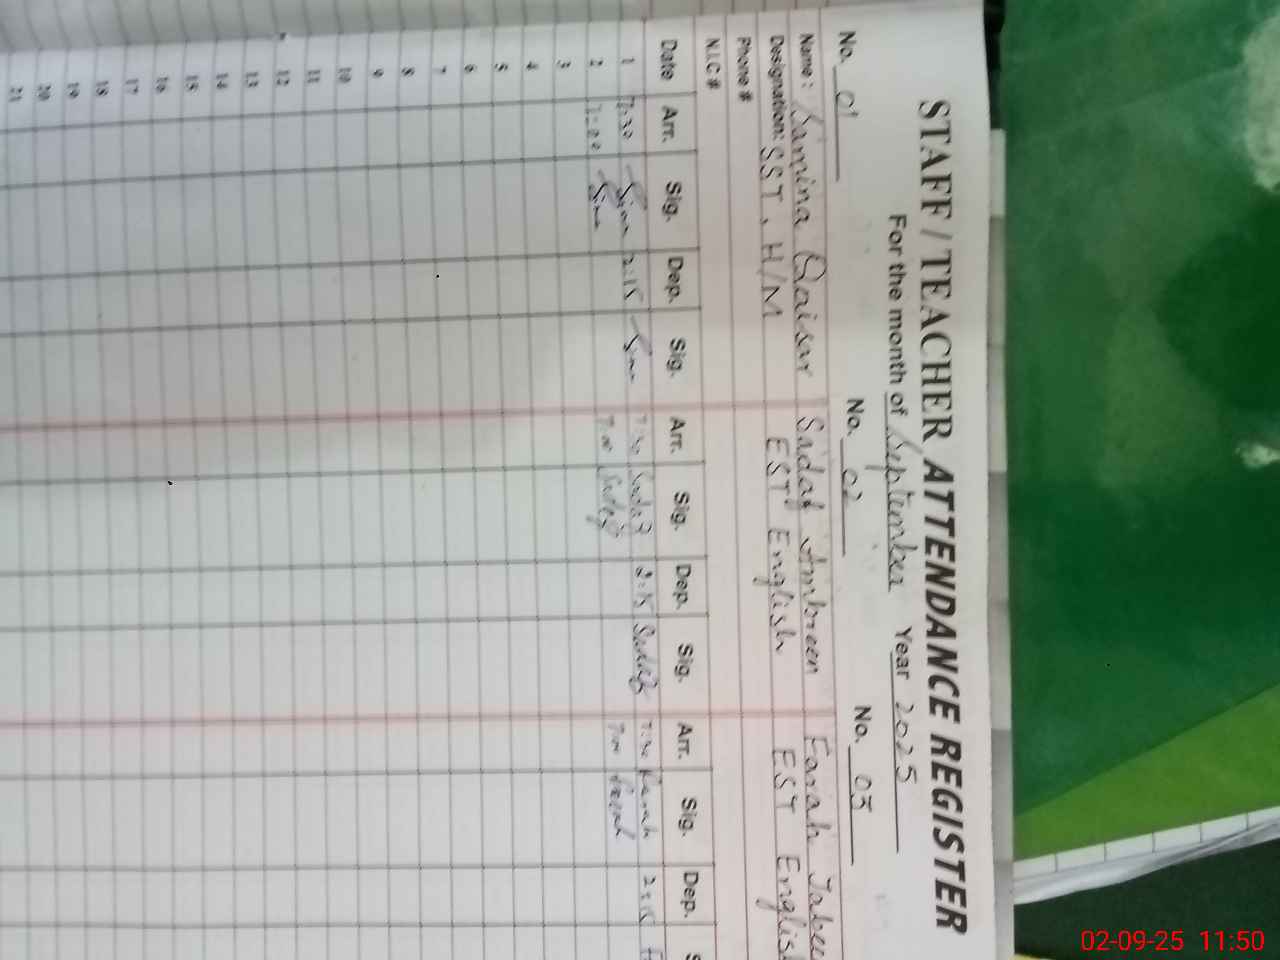 STAFF / TEACHER ATTENDANCE REGISTER
For the month of September Year 2025
No. 01 No. 02 No. 03
Name: Samina Qaisar Sadaf Ambreen Farah Jabee
Designation: SST, H/M EST English EST Englis
Phone #
N.I.C #
Date Arr. Sig. Dep. Sig. Arr. Sig. Dep. Sig. Arr. Sig. Dep. S
1 7:30 2:15 7:30 Sadaf 2:15 Sadaf 7:30 Farah 2:15
2 7:00 7:00 Sadaf 7:00 Farah
3
4
5
6
7
8
9
10
11
12
13
14
15
16
17
18
19
20
21
02-09-25 11:50